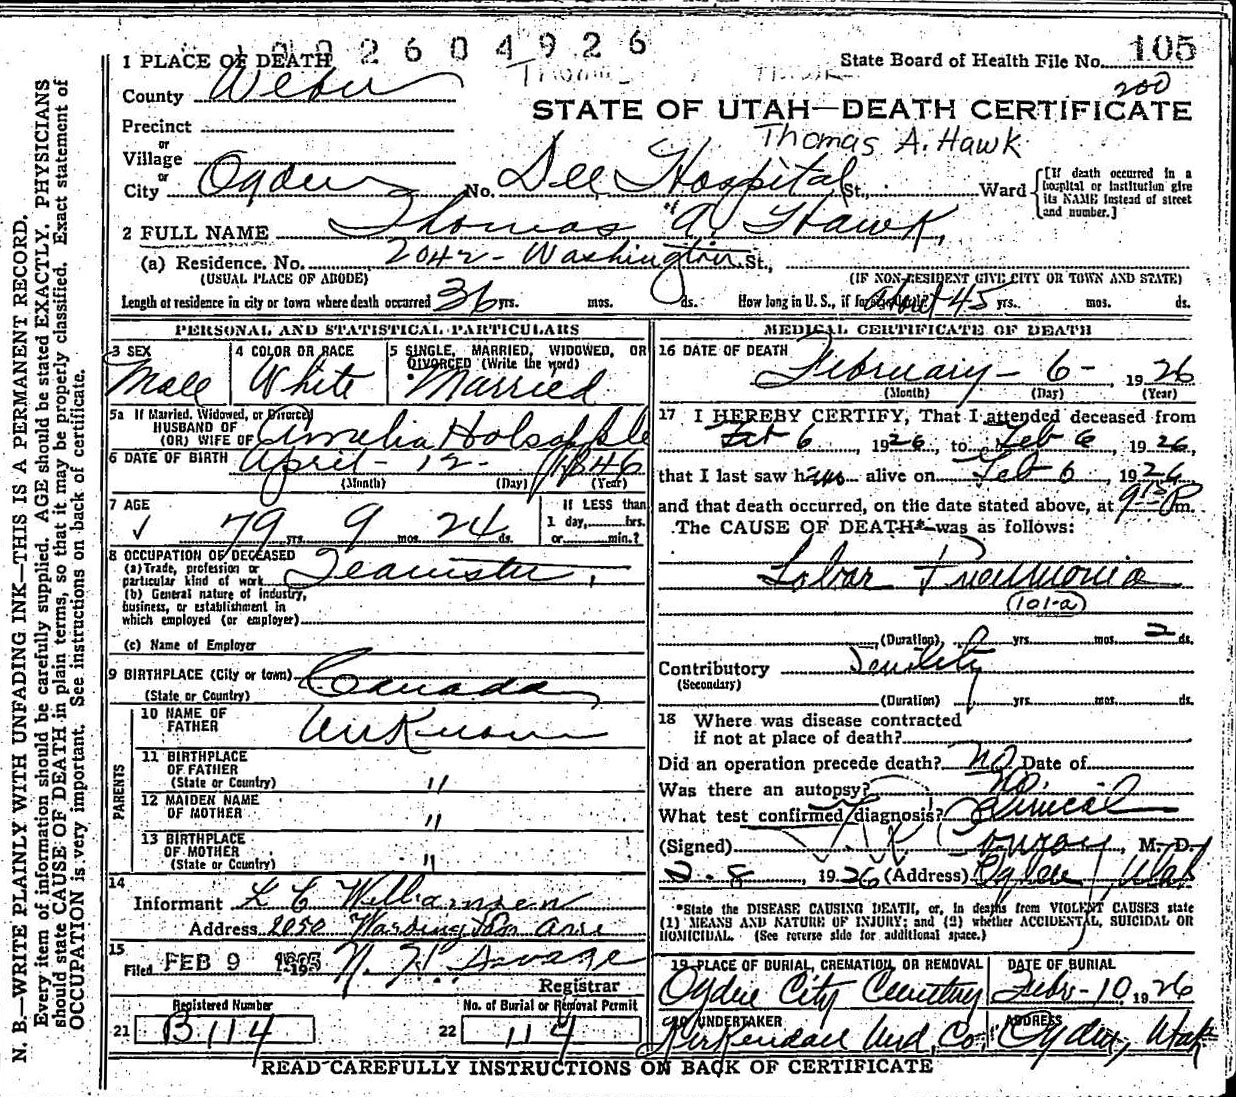 1002604926
1 PLACE OF DEATH
State Board of Health File No. 105
200
County Weber
STATE OF UTAH—DEATH CERTIFICATE
Precinct
Thomas A. Hawk
or
Village
or
City Ogden No. Dee Hospital St., Ward
[If death occurred in a hospital or institution give its NAME instead of street and number.]
2 FULL NAME Thomas A. Hawk,
(a) Residence. No. 2042 - Washington St.,
(USUAL PLACE OF ABODE) (IF NON-RESIDENT GIVE CITY OR TOWN AND STATE)
Length of residence in city or town where death occurred 36 yrs. mos. ds. How long in U.S., if for about 45 yrs. mos. ds.
PERSONAL AND STATISTICAL PARTICULARS
3 SEX Male
4 COLOR OR RACE White
5 SINGLE, MARRIED, WIDOWED, OR DIVORCED (Write the word)
Married
5a If Married, Widowed, or Divorced
HUSBAND OF
(OR) WIFE OF Amelia Holsapple
6 DATE OF BIRTH April - 12 - 1846
(Month) (Day) (Year)
7 AGE 79 yrs. 9 mos. 24 ds.
If LESS than
1 day, hrs.
or min.?
8 OCCUPATION OF DECEASED
(a) Trade, profession or
particular kind of work Teamster,
(b) General nature of industry,
business, or establishment in
which employed (or employer)
(c) Name of Employer
9 BIRTHPLACE (City or town) Canada
(State or Country)
PARENTS
10 NAME OF
FATHER Unknown
11 BIRTHPLACE
OF FATHER
(State or Country) "
12 MAIDEN NAME
OF MOTHER "
13 BIRTHPLACE
OF MOTHER
(State or Country) "
14
Informant L E Williamsen
Address 2050 Washington Ave
15
Filed FEB 9 N. H. Savage
Registrar
Registered Number
21 B114
No. of Burial or Removal Permit
22 114
MEDICAL CERTIFICATE OF DEATH
16 DATE OF DEATH
February - 6 - , 1926
(Month) (Day) (Year)
17 I HEREBY CERTIFY, That I attended deceased from
Feb 6, 1926, to Feb 6, 1926,
that I last saw him alive on Feb 6, 1926
and that death occurred, on the date stated above, at 9 P m.
The CAUSE OF DEATH* was as follows:
Lobar Pneumonia
101-a
(Duration) yrs. mos. 2 ds.
Contributory Senility
(Secondary)
(Duration) yrs. mos. ds.
18 Where was disease contracted
if not at place of death?
Did an operation precede death? no Date of
Was there an autopsy? no.
What test confirmed diagnosis? Clinical
(Signed) , M. D.
2-8, 1926 (Address) Ogden, Utah
*State the DISEASE CAUSING DEATH, or, in deaths from VIOLENT CAUSES state
(1) MEANS AND NATURE OF INJURY; and (2) whether ACCIDENTAL, SUICIDAL OR
HOMICIDAL. (See reverse side for additional space.)
19 PLACE OF BURIAL, CREMATION, OR REMOVAL
Ogden City Cemetery
DATE OF BURIAL
Febr - 10, 1926
20 UNDERTAKER
Kirkendall Und. Co.
ADDRESS
Ogden, Utah
READ CAREFULLY INSTRUCTIONS ON BACK OF CERTIFICATE
N. B.—WRITE PLAINLY WITH UNFADING INK—THIS IS A PERMANENT RECORD.
Every item of information should be carefully supplied. AGE should be stated EXACTLY. PHYSICIANS
should state CAUSE OF DEATH in plain terms, so that it may be properly classified. Exact statement of
OCCUPATION is very important. See instructions on back of certificate.